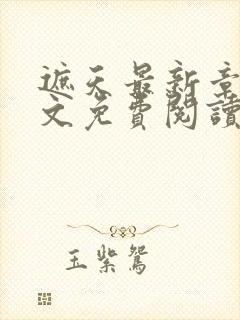 遮天最新章
文免費閱讀
玉紫鴛